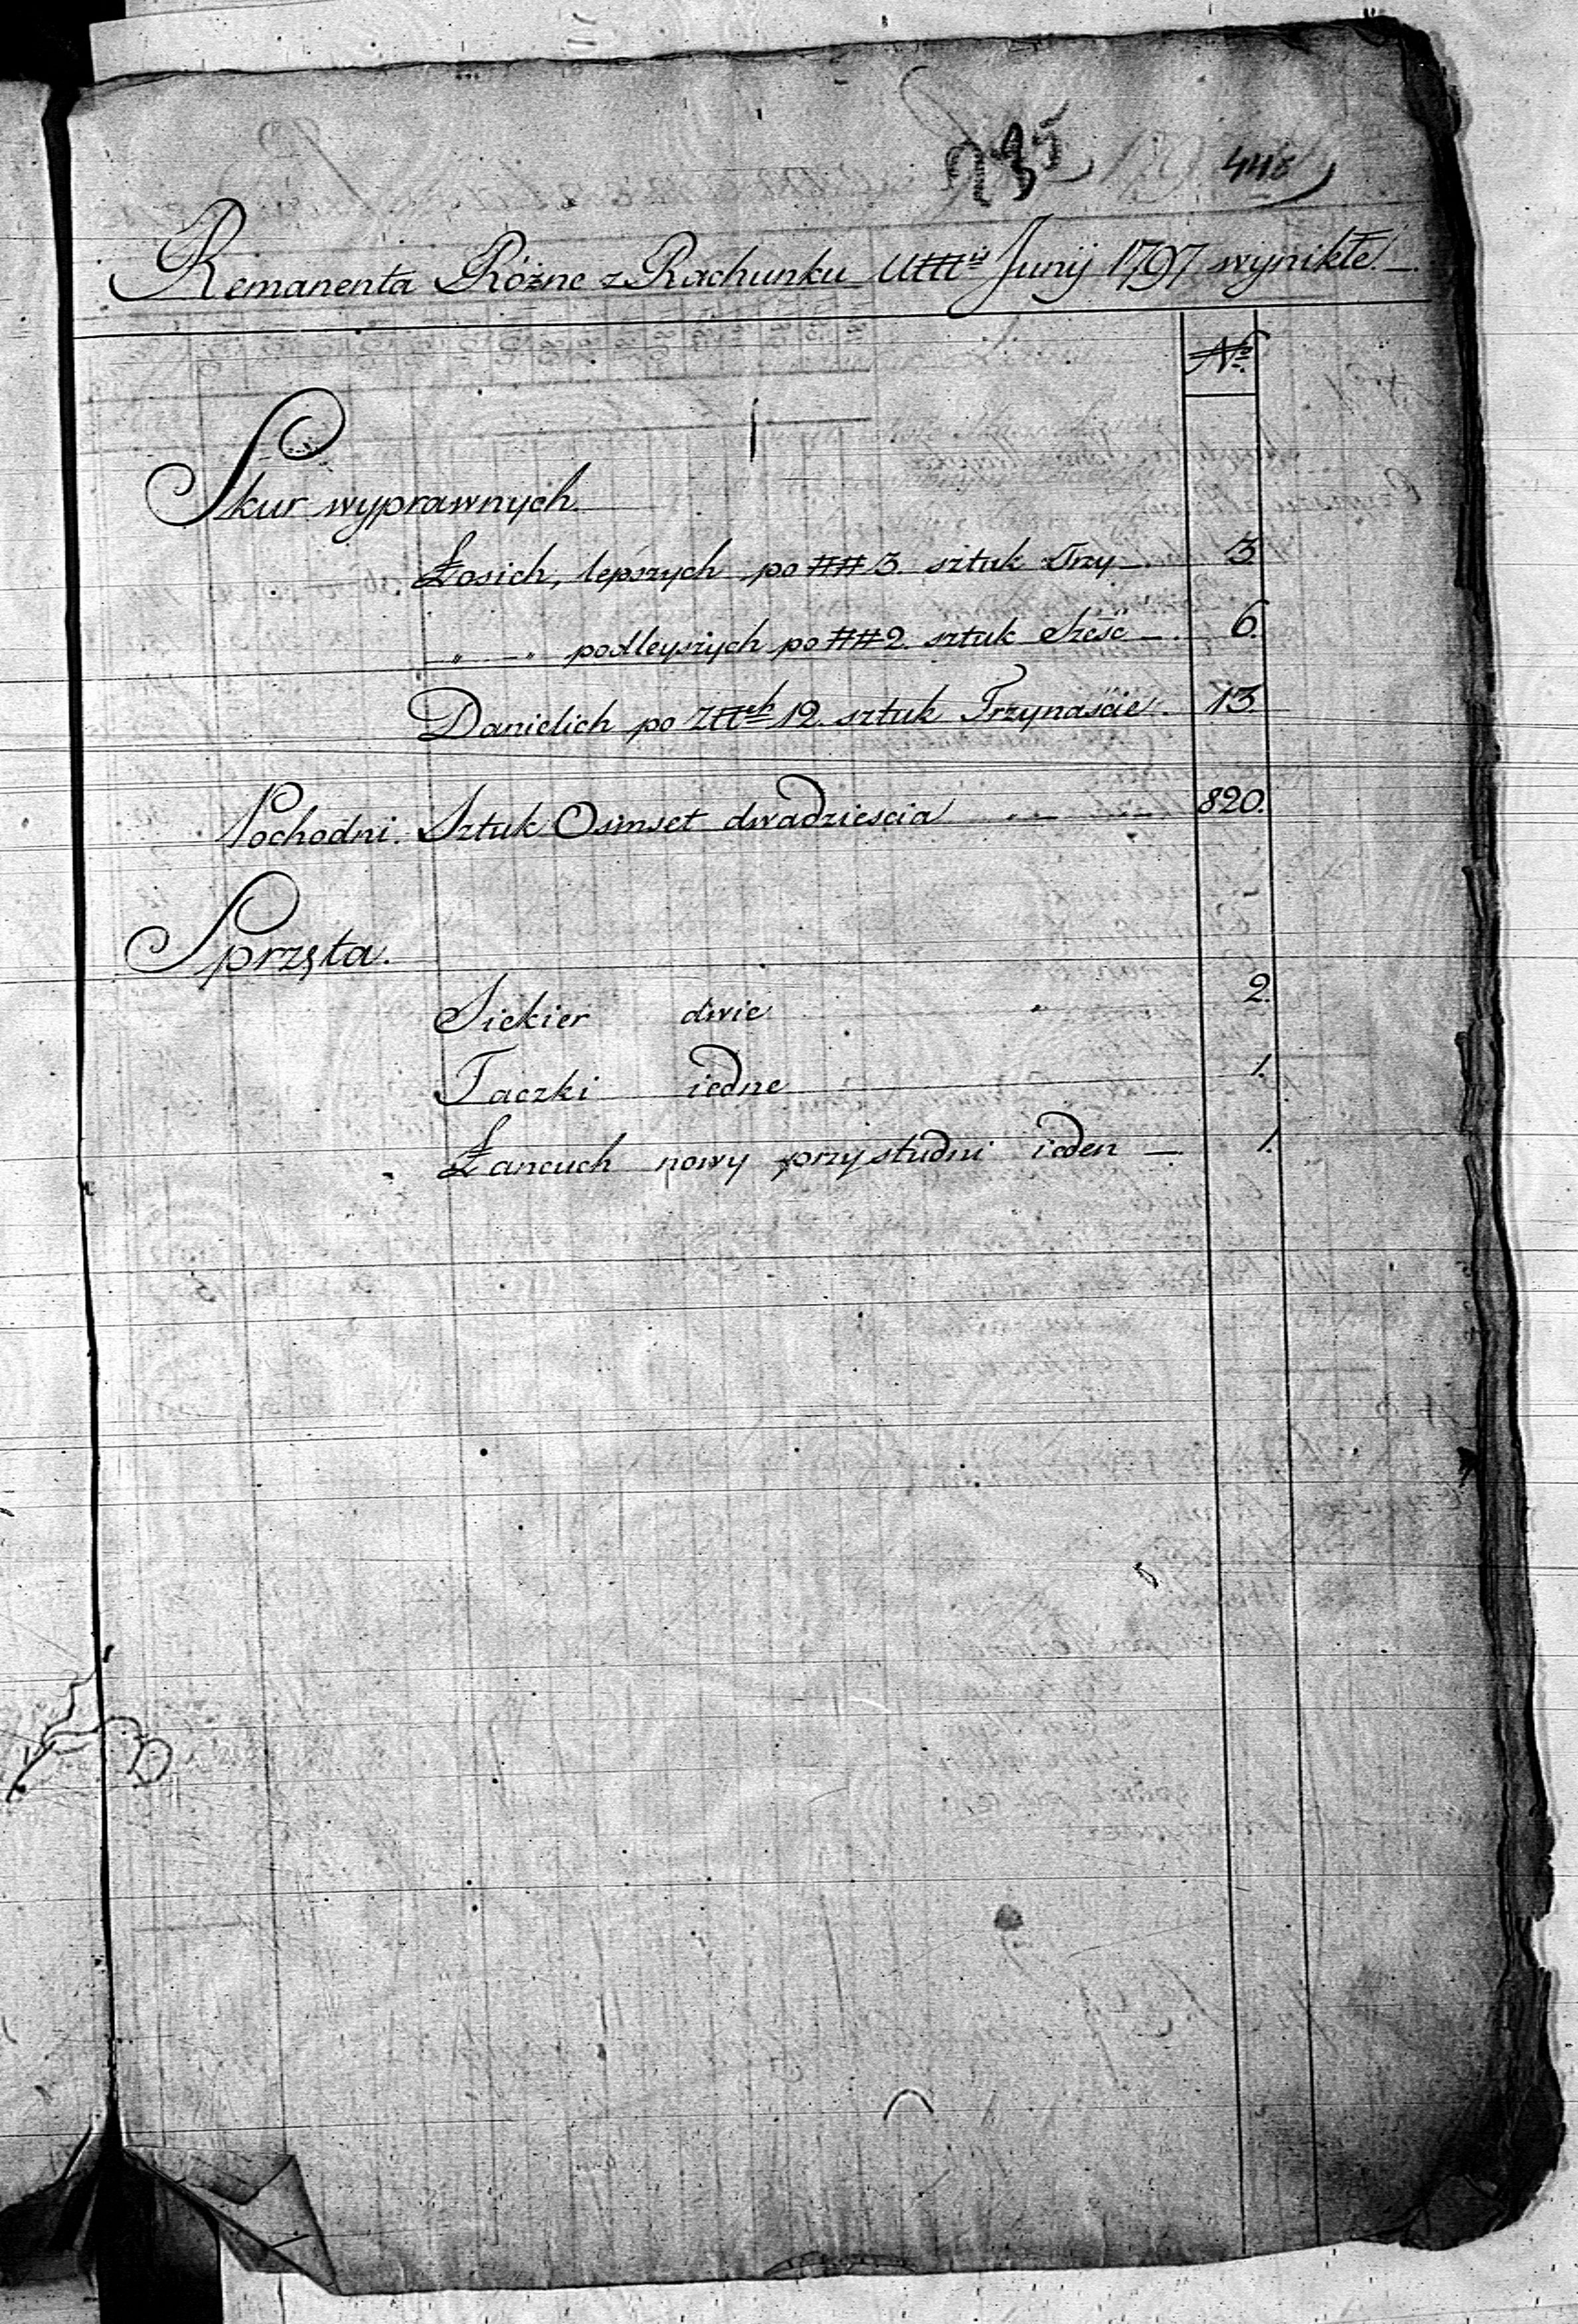 235 448
Remanenta Różne z Rachunku Ulttis Junij 1797 wynikłe.
No
Skur wyprawnych
Łosich, lepszych po ## 3. sztuk Trzy 3.
" " podleyszych po ## 2. sztuk Sześć 6.
Danielich po Zttch 12. sztuk Trzynaście. 13.
Pochodni. Sztuk Osmset dwadziescia 820.
Sprzęta.
Siekier dwie " 2.
Taczki iedne 1.
Łancuch nowy przy studni ieden 1.